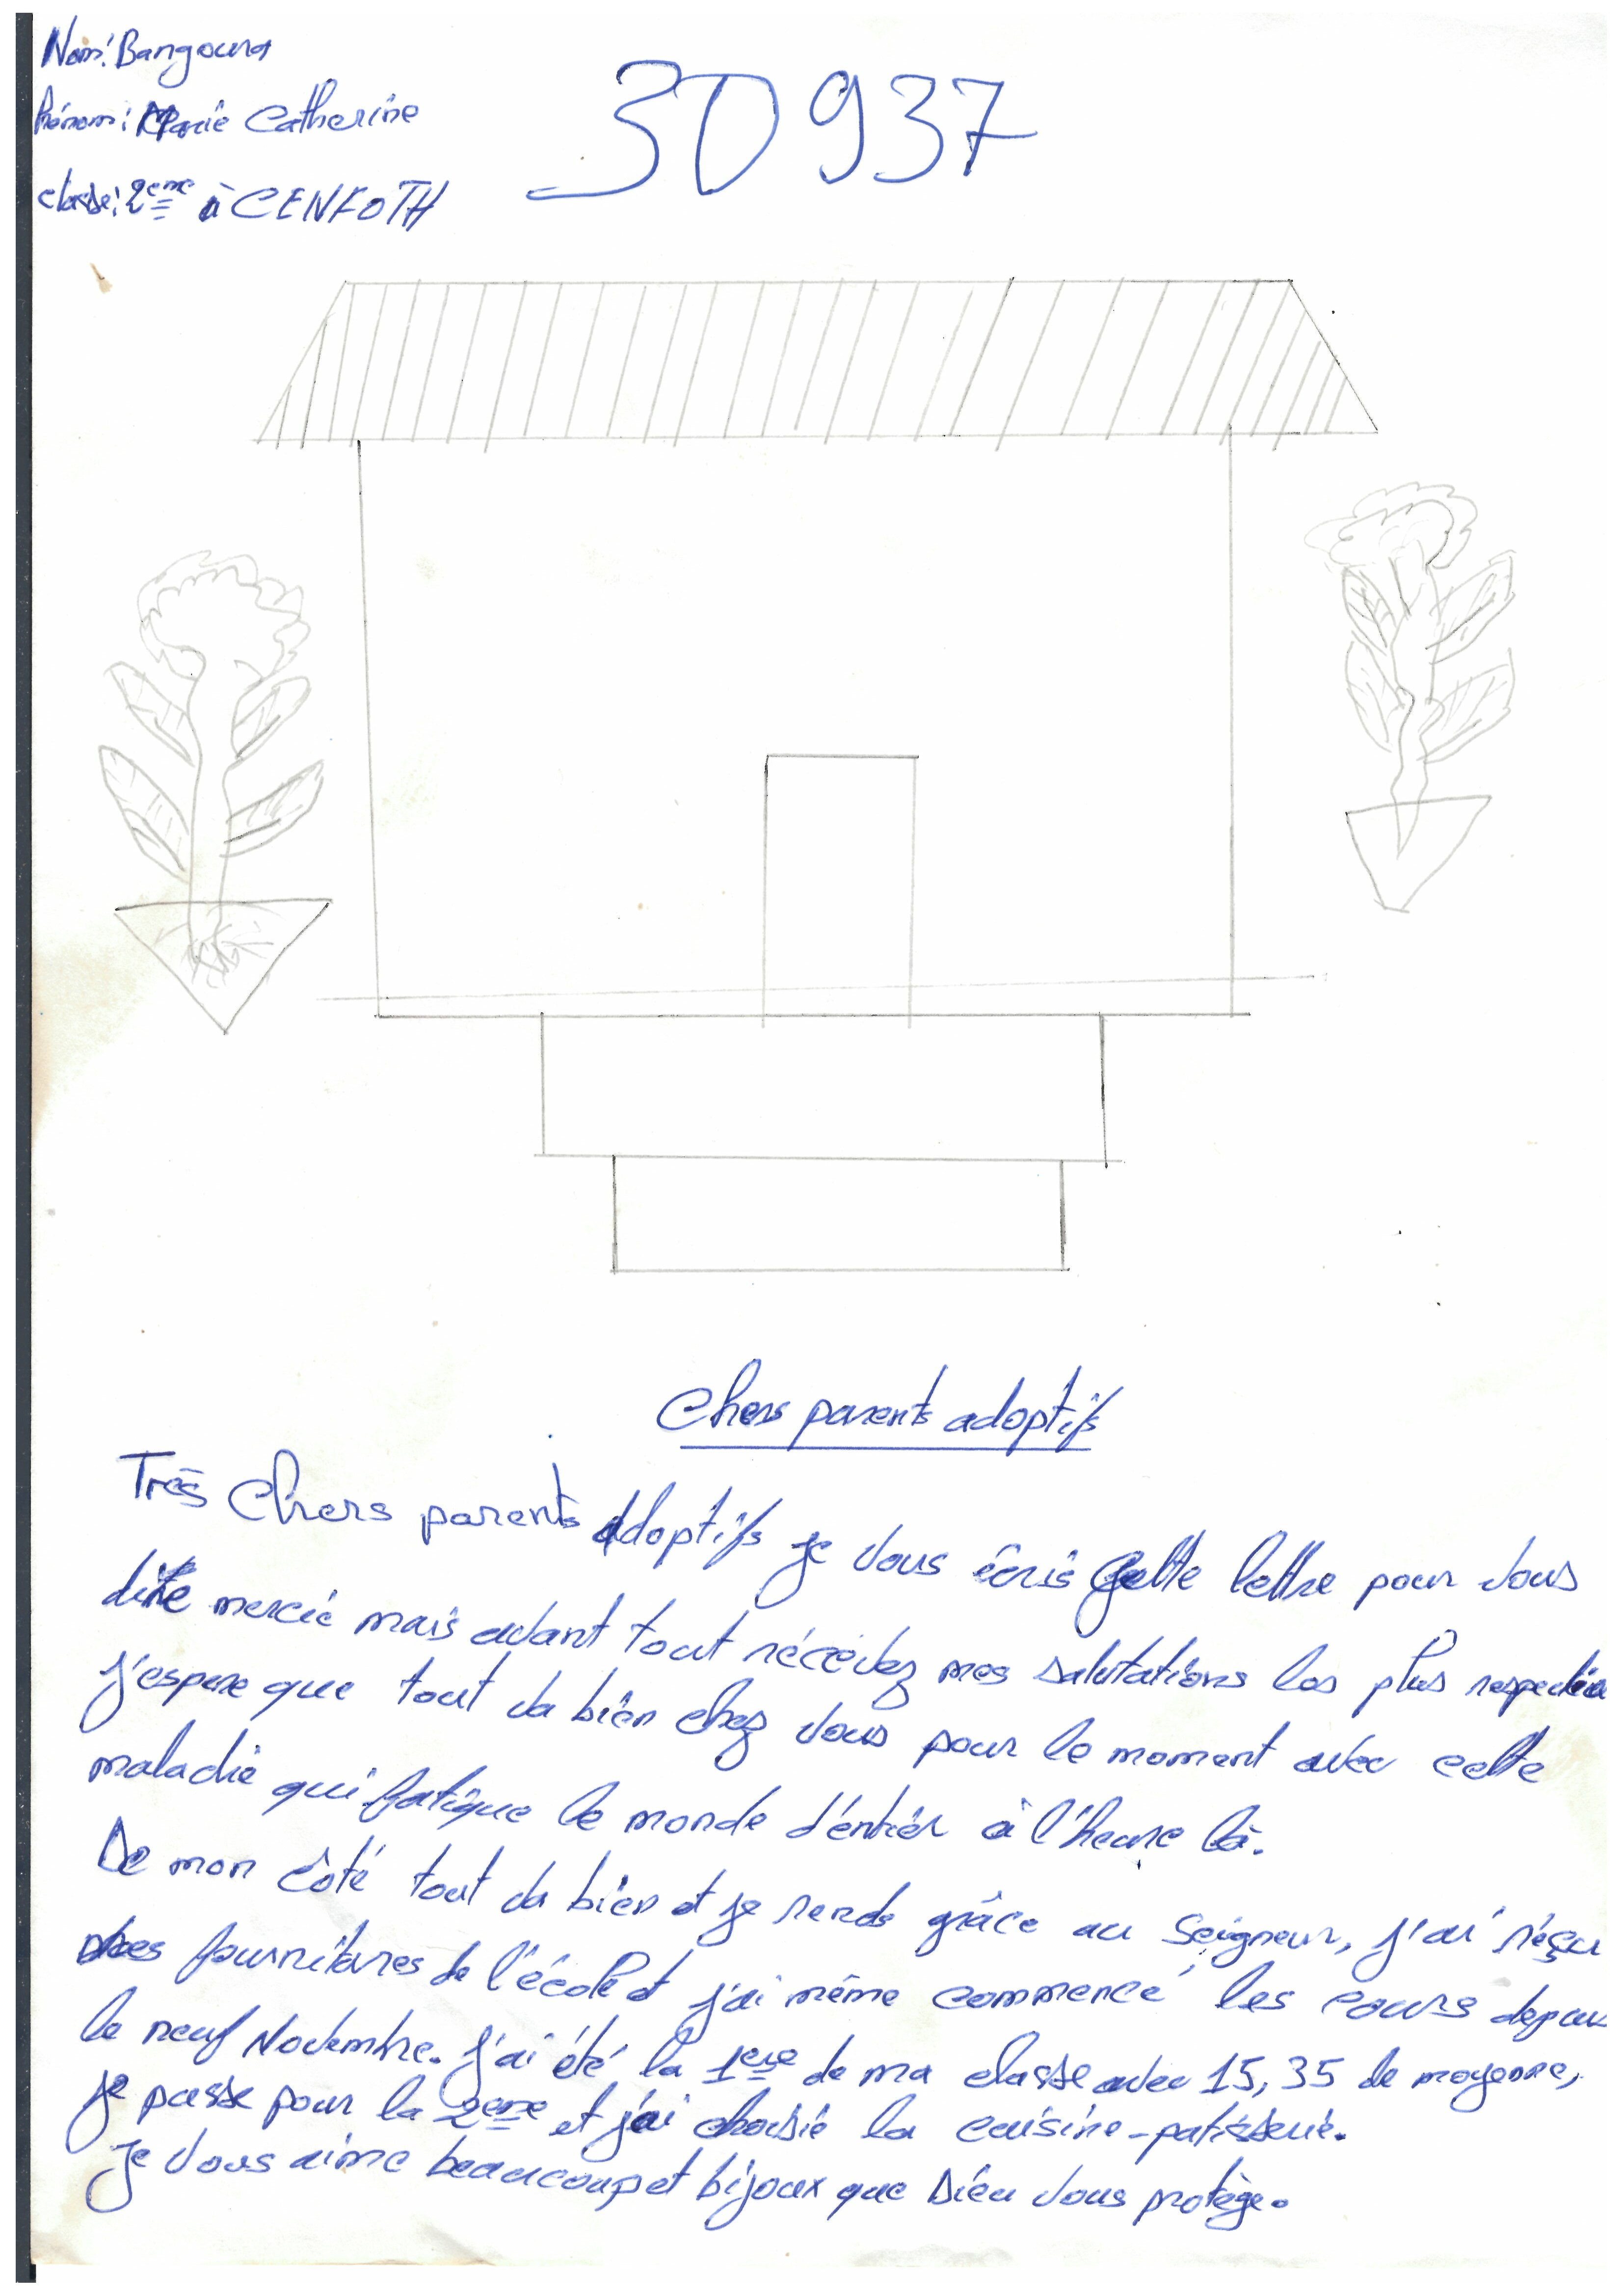 Nom: Bangoura
Prénom: Marie Catherine
classe: 2eme à CENFOTH
30937
Chers parents adoptifs
Très Chers parents Adoptifs je vous écris cette lettre pour vous
dire mercie mais avant tout récévez mes salutations les plus
j'espere que tout va bien chez vous pour le moment avec cette
maladie qui fatigue le monde d'entiér à l'heure là.
De mon côté tout va bien et je rends grâce au Seigneur, j'ai réçu
fournitures de l'école et j'ai même commencé les cours depuis
le neuf Novembre. J'ai été la 1ere de ma classe avec 15,35 de moyenne,
je passe pour la 2eme et j'ai choisie la cuisine-patisserie.
Je vous aime beaucoup et bijoux que Dieu vous protège.